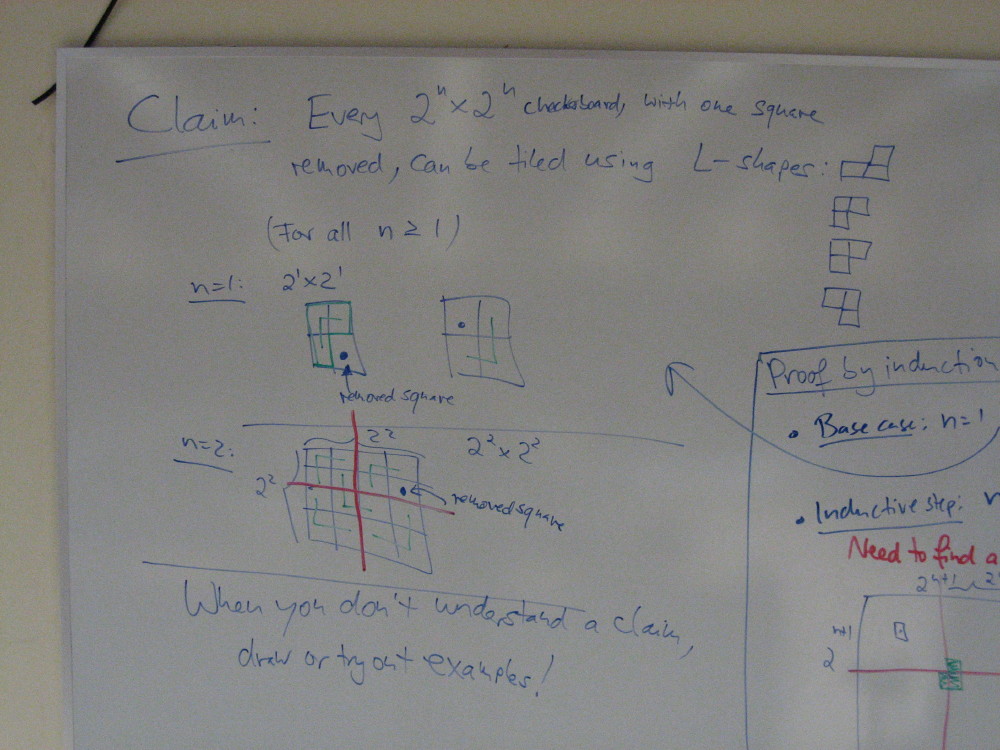 Claim: Every 2ⁿ × 2ⁿ checkerboard, with one square
removed, can be tiled using L-shapes:
(For all n ≥ 1)
n=1: 2¹×2¹
removed square
n=2: 2² 2²×2²
2² removed square
When you don't understand a claim,
draw or try out examples!
Proof by induction
• Base case: n=1
• Inductive step: n
Need to find a
2ⁿ⁺¹
2ⁿ⁺¹